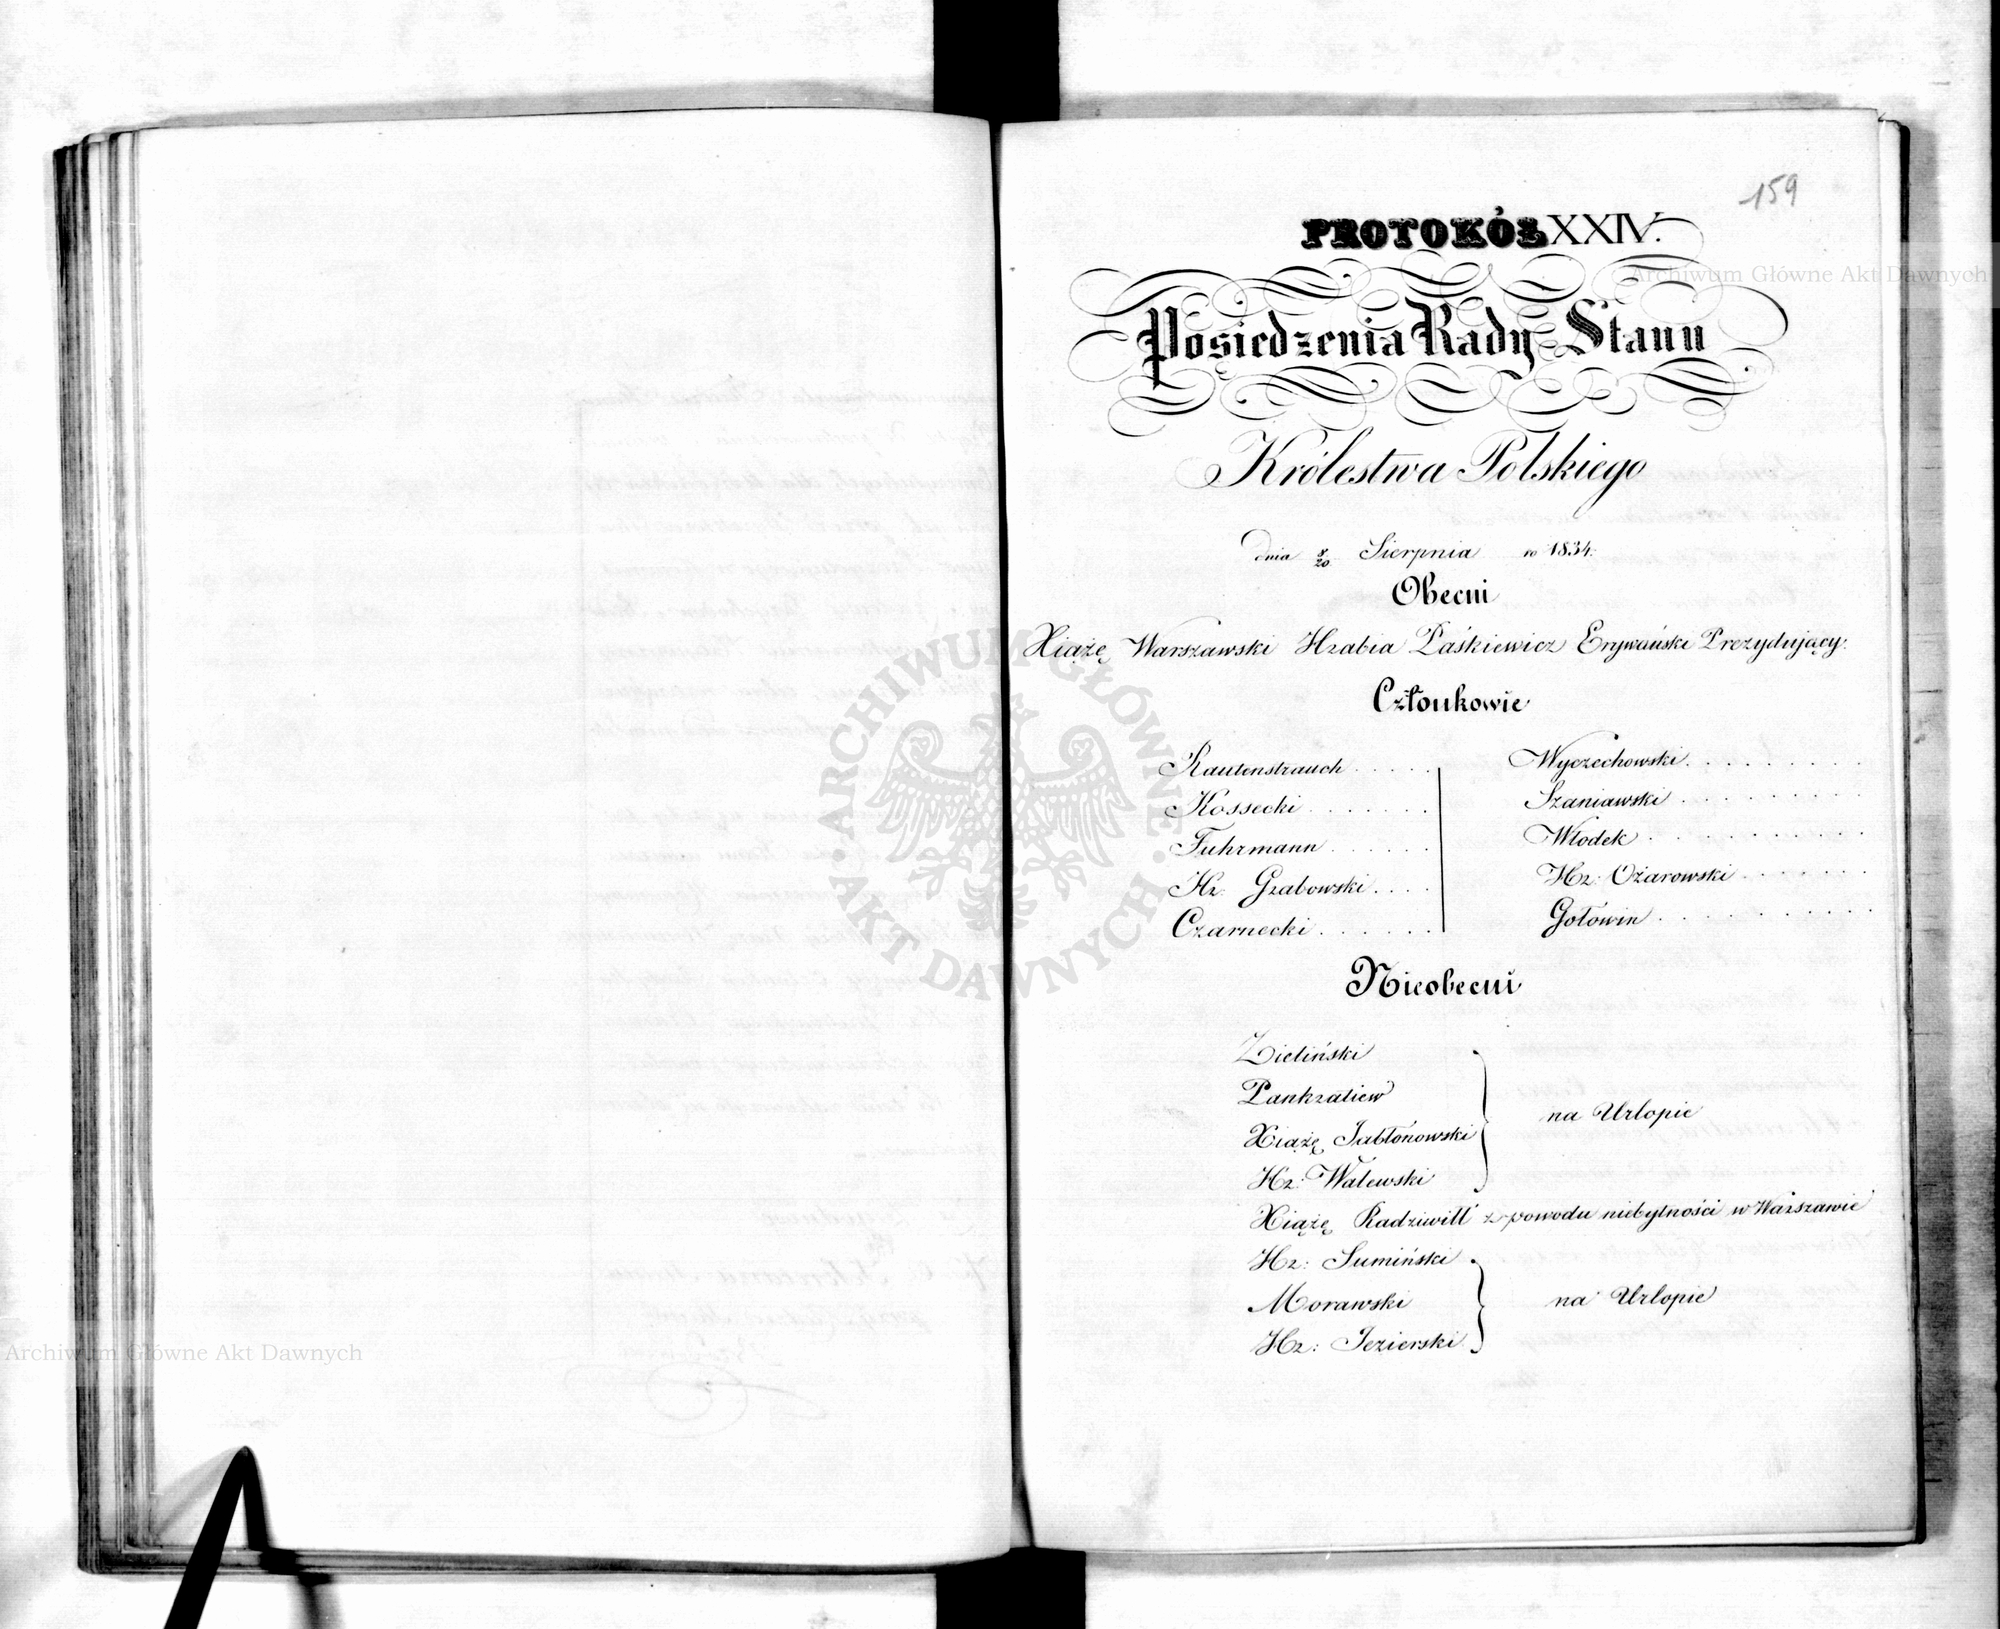 159
PROTOKÓŁ XXIV.
Posiedzenia Rady Stanu
Królestwa Polskiego
dnia 8/20 Sierpnia ro 1834.
Obecni
Xiążę Warszawski Hrabia Paśkiewicz Erywański Prezydujący.
Członkowie
Rautenstrauch . . . . .
Kossecki . . . . . . .
Fuhrmann . . . . . .
Hr: Grabowski . . . .
Czarnecki . . . . . .
Wyczechowski . . . . . . . .
Szaniawski . . . . . . . . .
Włodek . . . . . . . . . . .
Hr: Ożarowski . . . . . . .
Gołówin . . . . . . . . . .
Nieobecni
Zieliński
Pankratiew
Xiążę Jabłonowski
Hr: Walewski
na Urlopie
Xiążę Radziwiłł z powodu niebytności w Warszawie
Hr: Sumiński
Morawski
Hr: Jezierski
na Urlopie
Archiwum Główne Akt Dawnych
Archiwum Główne Akt Dawnych
ARCHIWUM GŁÓWNE AKT DAWNYCH